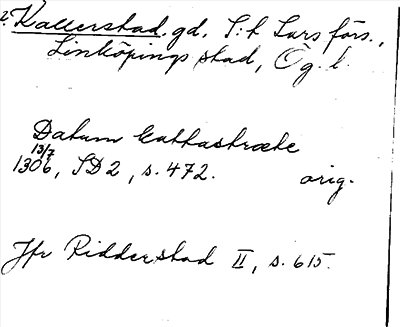 2. Kallerstad. gd. S:t Lars förs.,
Linköpings stad, Ög. l.
Datum Catthastrædhe
13/7
1306, SD 2, s. 472. orig.
Jfr Ridderstad II, s. 615.